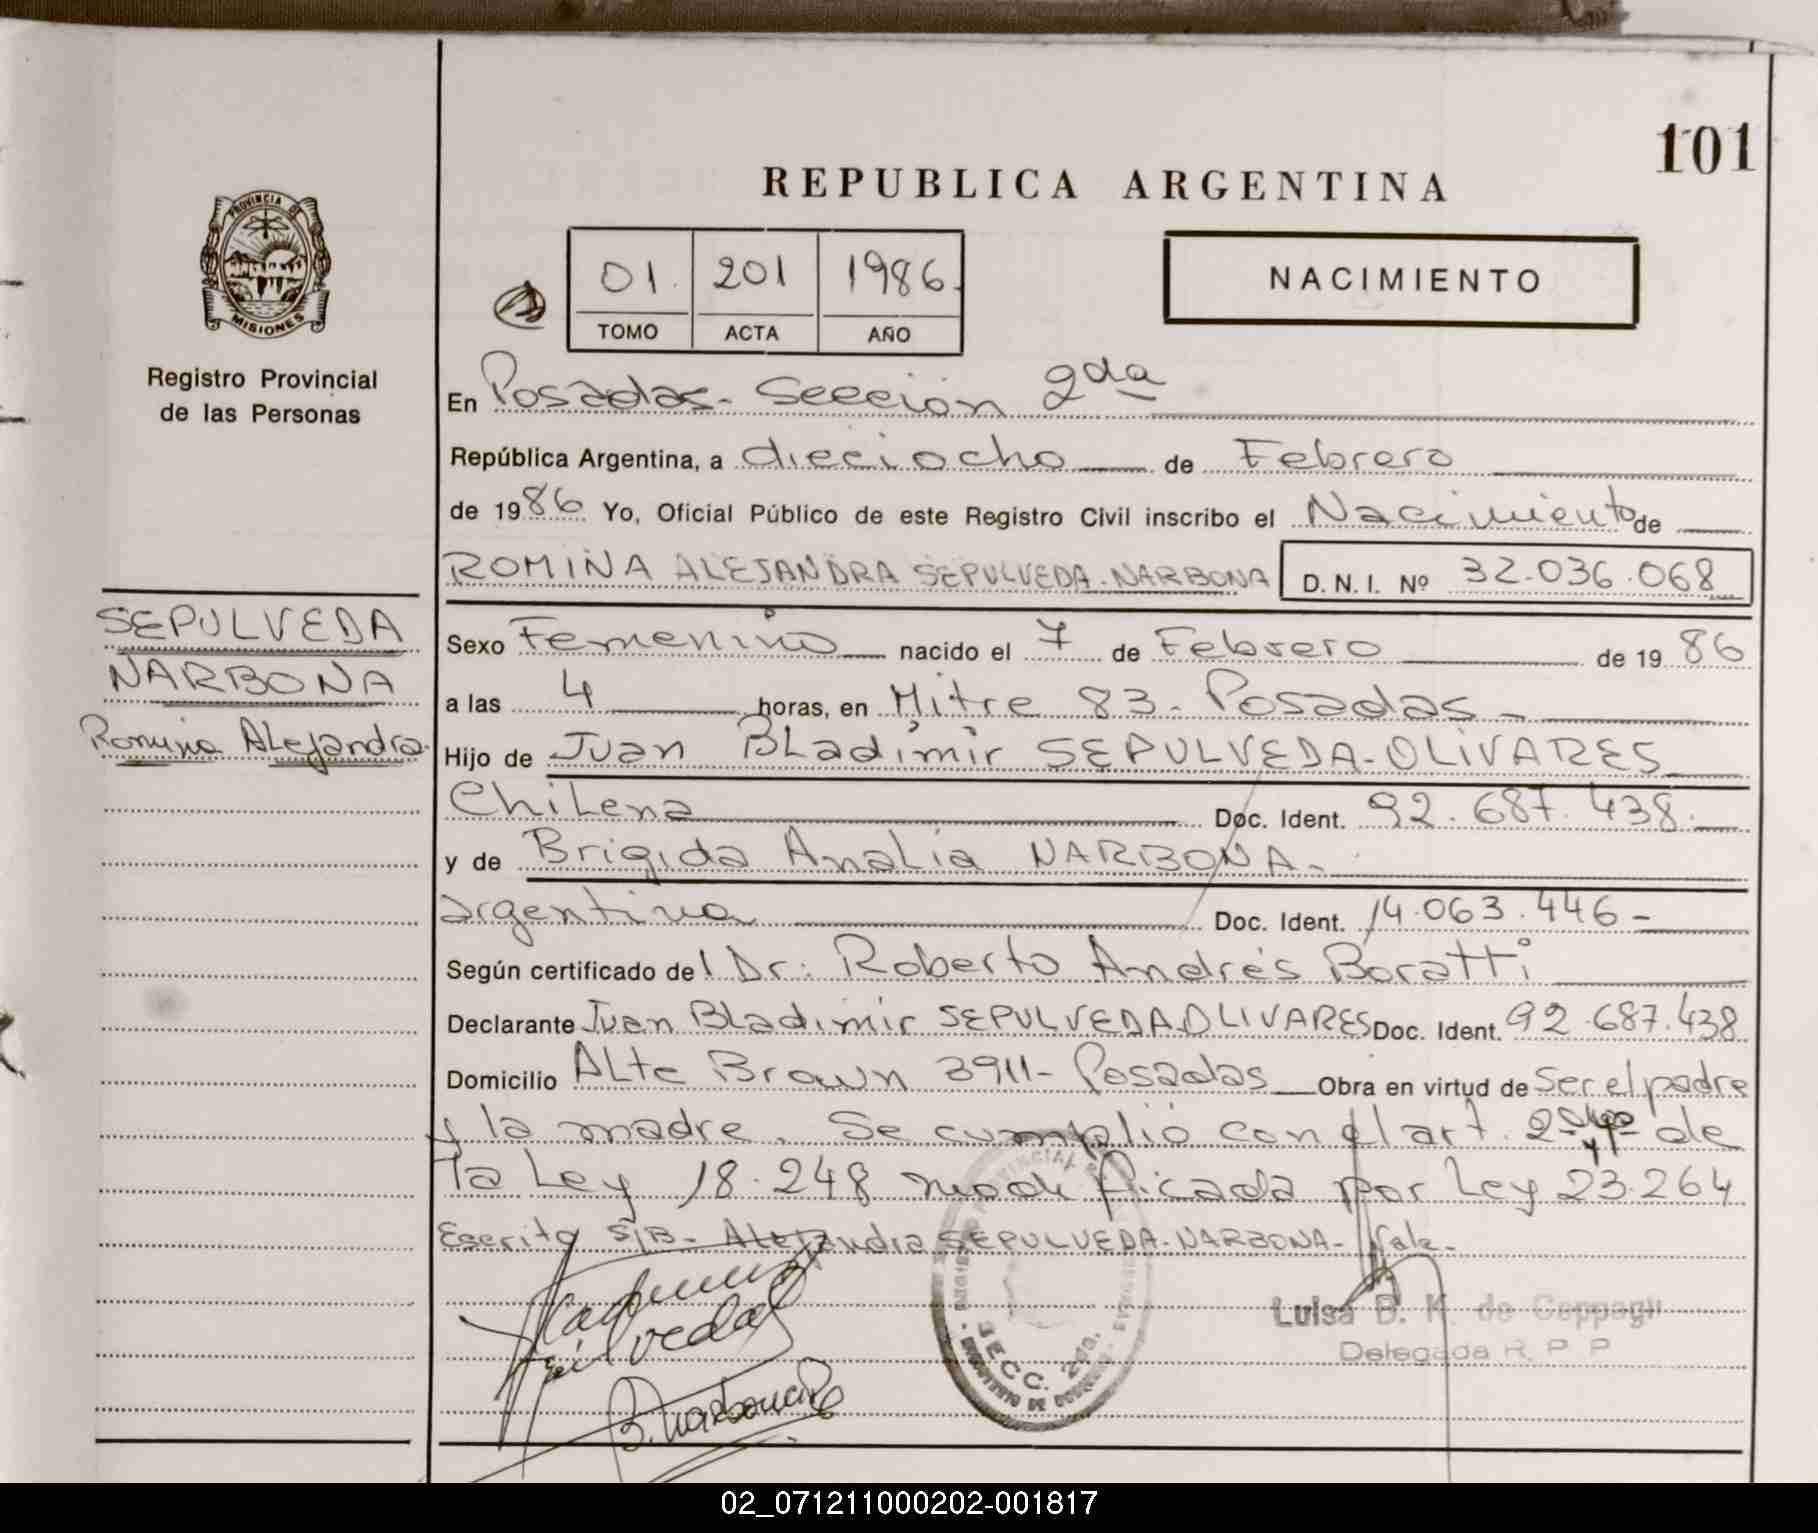 101
REPUBLICA ARGENTINA
PROVINCIA DE
MISIONES
Registro Provincial
de las Personas
01. 201 1986.
TOMO ACTA AÑO
NACIMIENTO
En Posadas. Sección 2da
República Argentina, a dieciocho de Febrero
de 1986 Yo, Oficial Público de este Registro Civil inscribo el Nacimiento de
ROMINA ALEJANDRA SEPULVEDA-NARBONA D. N. I. Nº 32.036.068
SEPULVEDA
NARBONA
Romina Alejandra.
Sexo Femenino nacido el 7 de Febrero de 1986
a las 4 horas, en Mitre 83. Posadas
Hijo de Juan Bladimir SEPULVEDA-OLIVARES
Chilena Doc. Ident. 92.687.438.
y de Brigida Analia NARBONA.
argentina Doc. Ident. 14.063.446-
Según certificado del Dr. Roberto Andrés Boratti
Declarante Juan Bladimir SEPULVEDA-OLIVARES Doc. Ident. 92.687.438
Domicilio Alte Brown 3911- Posadas Obra en virtud de Ser el padre
y la madre. Se cumplió con el art. de
la Ley 18.248 modificada por Ley 23.264
Escrito S/B- Alejandra SEPULVEDA-NARBONA- Vale.
Sepulveda
B. Narbona
SECC. 2da.
Luisa B. K. de
Delegada R. P. P
02_071211000202-001817